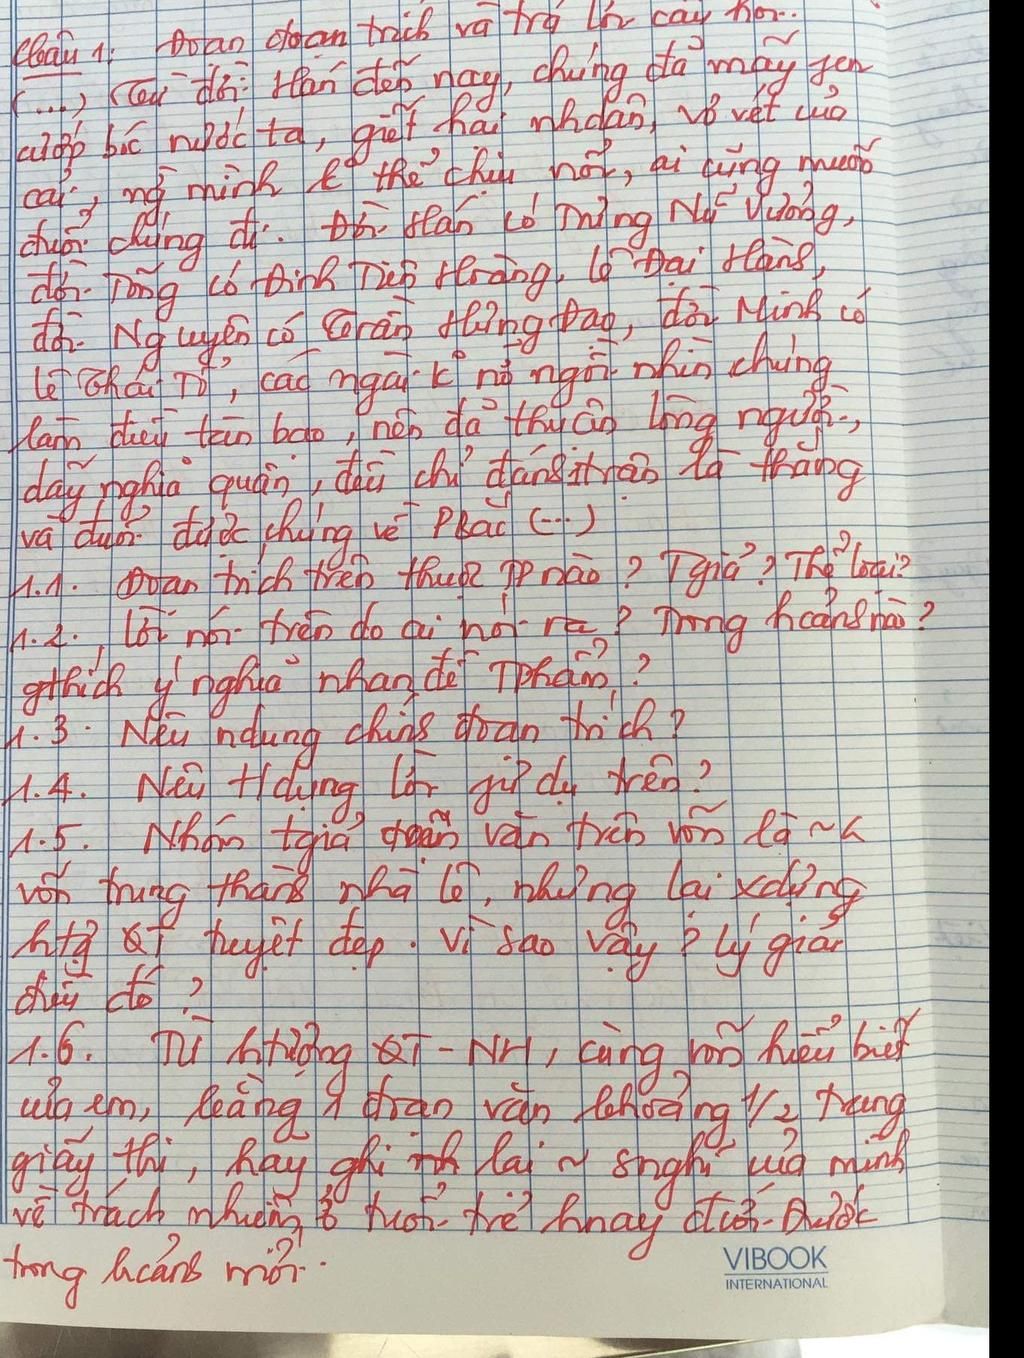 Câu 1: Đoạn đoạn trích và trả lời câu hỏi..
(...) Từ đời Hán đến nay, chúng đã mấy fen
cướp bóc nước ta, giết hại nhdân, vơ vét của
cải, ng mình k thể chịu nổi, ai cũng muốn
đuổi chúng đi. Đời Hán có Trưng Nữ Vương,
đời Tống có Đinh Tiên Hoàng, Lê Đại Hành,
đời Nguyên có Trần Hưng Đạo, đời Minh có
Lê Thái Tổ, các ngài k nỡ ngồi nhìn chúng
làm điều tàn bạo, nên đã thuận lòng người,
dấy nghĩa quân, đều chỉ đánh 1 trận là thắng
và đuổi được chúng về P Bắc (...)
1.1. Đoạn trích trên thuộc TP nào? Tgiả? Thể loại?
1.2. Lời nói trên do ai nói ra? Trong hcảnh nào?
gthích ý nghĩa nhan đề Tphẩm?
1.3. Nêu ndung chính đoạn trích?
1.4. Nêu Hdụng lời dụ trên?
1.5. Nhóm tgiả đoạn văn trên vốn là ~
vốn trung thành nhà Lê, nhưng lại xdựng
htg QT tuyệt đẹp. Vì sao vậy? Lý giải
điều đó?
1.6. Từ htượng QT-NH, cùng vốn hiểu biết
của em, bằng 1 đoạn văn khoảng 1/2 trang
giấy thi, hãy ghi lại ~ snghĩ của mình
về trách nhiệm tuổi trẻ hnay đối Đước
trong hcảnh mới.
VIBOOK
INTERNATIONAL